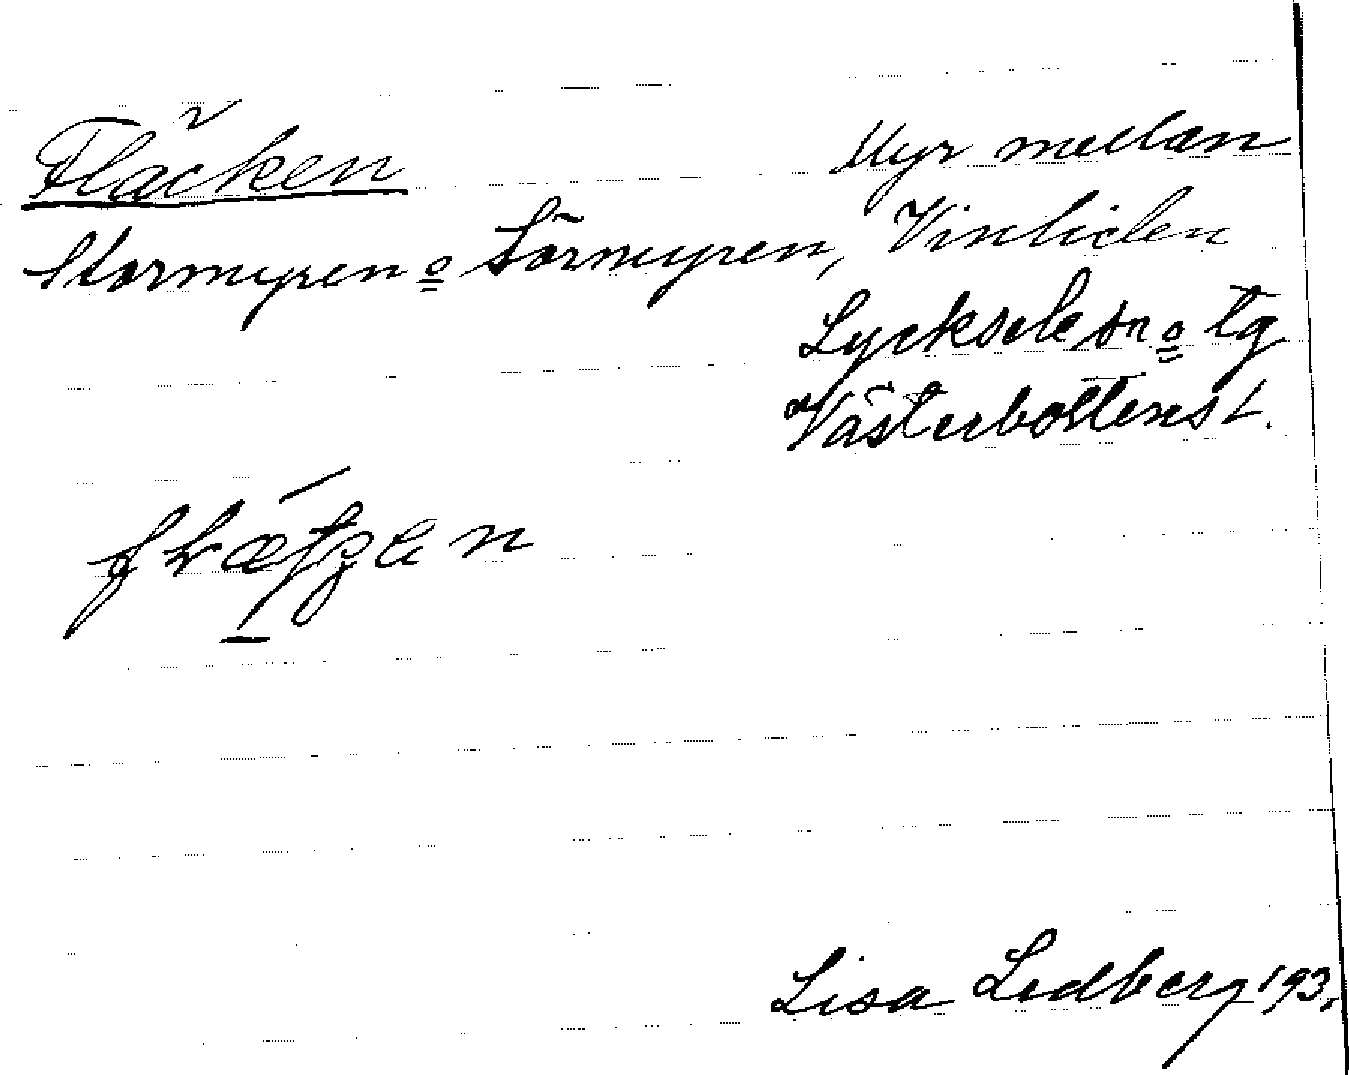 Fläcken
Myr mellan
Stormyren o Sörmyren, Vinliden
Lycksele sn o tg
Västerbottens l.
Lisa Ledberg 193